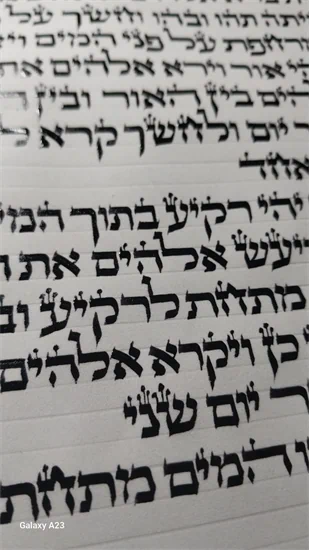 יתה תהו ובהו וחשך על
רחפת על פני המים וי
י אור וירא אלהים את
הים בין האור ובין
יום ולחשך קרא ל
אחד
יהי רקיע בתוך המי
יעש אלהים את ה
מתחת לרקיע וב
כן ויקרא אלהים
ר יום שני
ו המים מתחת
Galaxy A23